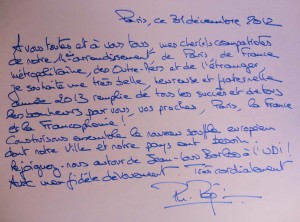 Paris, ce 31 décembre 2012
A vous toutes et à vous tous, mes cher(e)s compatriotes
de notre 11e arrondissement de Paris, de France
métropolitaine, des Outre-Mers et de l'étranger,
je souhaite une très belle, heureuse et fraternelle
année 2013 remplie de tous les succès et de tous
les bonheurs pour vous, vos proches, Paris, la France
et la Francophonie !
Construisons ensemble le nouveau souffle européen
dont notre Ville et notre pays ont besoin :
Rejoignez-nous autour de Jean-Louis Borloo à l'UDI !
Avec mon fidèle dévouement. Très cordialement